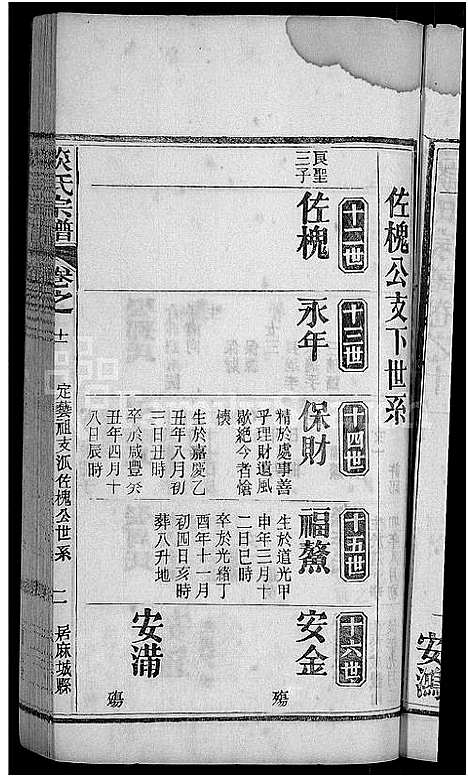 佐槐公支下世系
十二世
十三世
十四世
十五世
十六世
良聖
三子
佐槐
永年
保財
精於處事善
乎理財遺風
歇絶今者愴
懷
生於嘉慶乙
丑年八月初
三日丑時
卒於咸豐癸
丑年四月十
八日辰時
福鰲
生於道光甲
申年三月十
二日巳時
卒於光緒丁
酉年十一月
初四日亥時
葬八升地
安金
殤
安滿
殤
氏宗譜
卷之十
定藝祖支派佐槐公世系
居麻城縣
安鴻